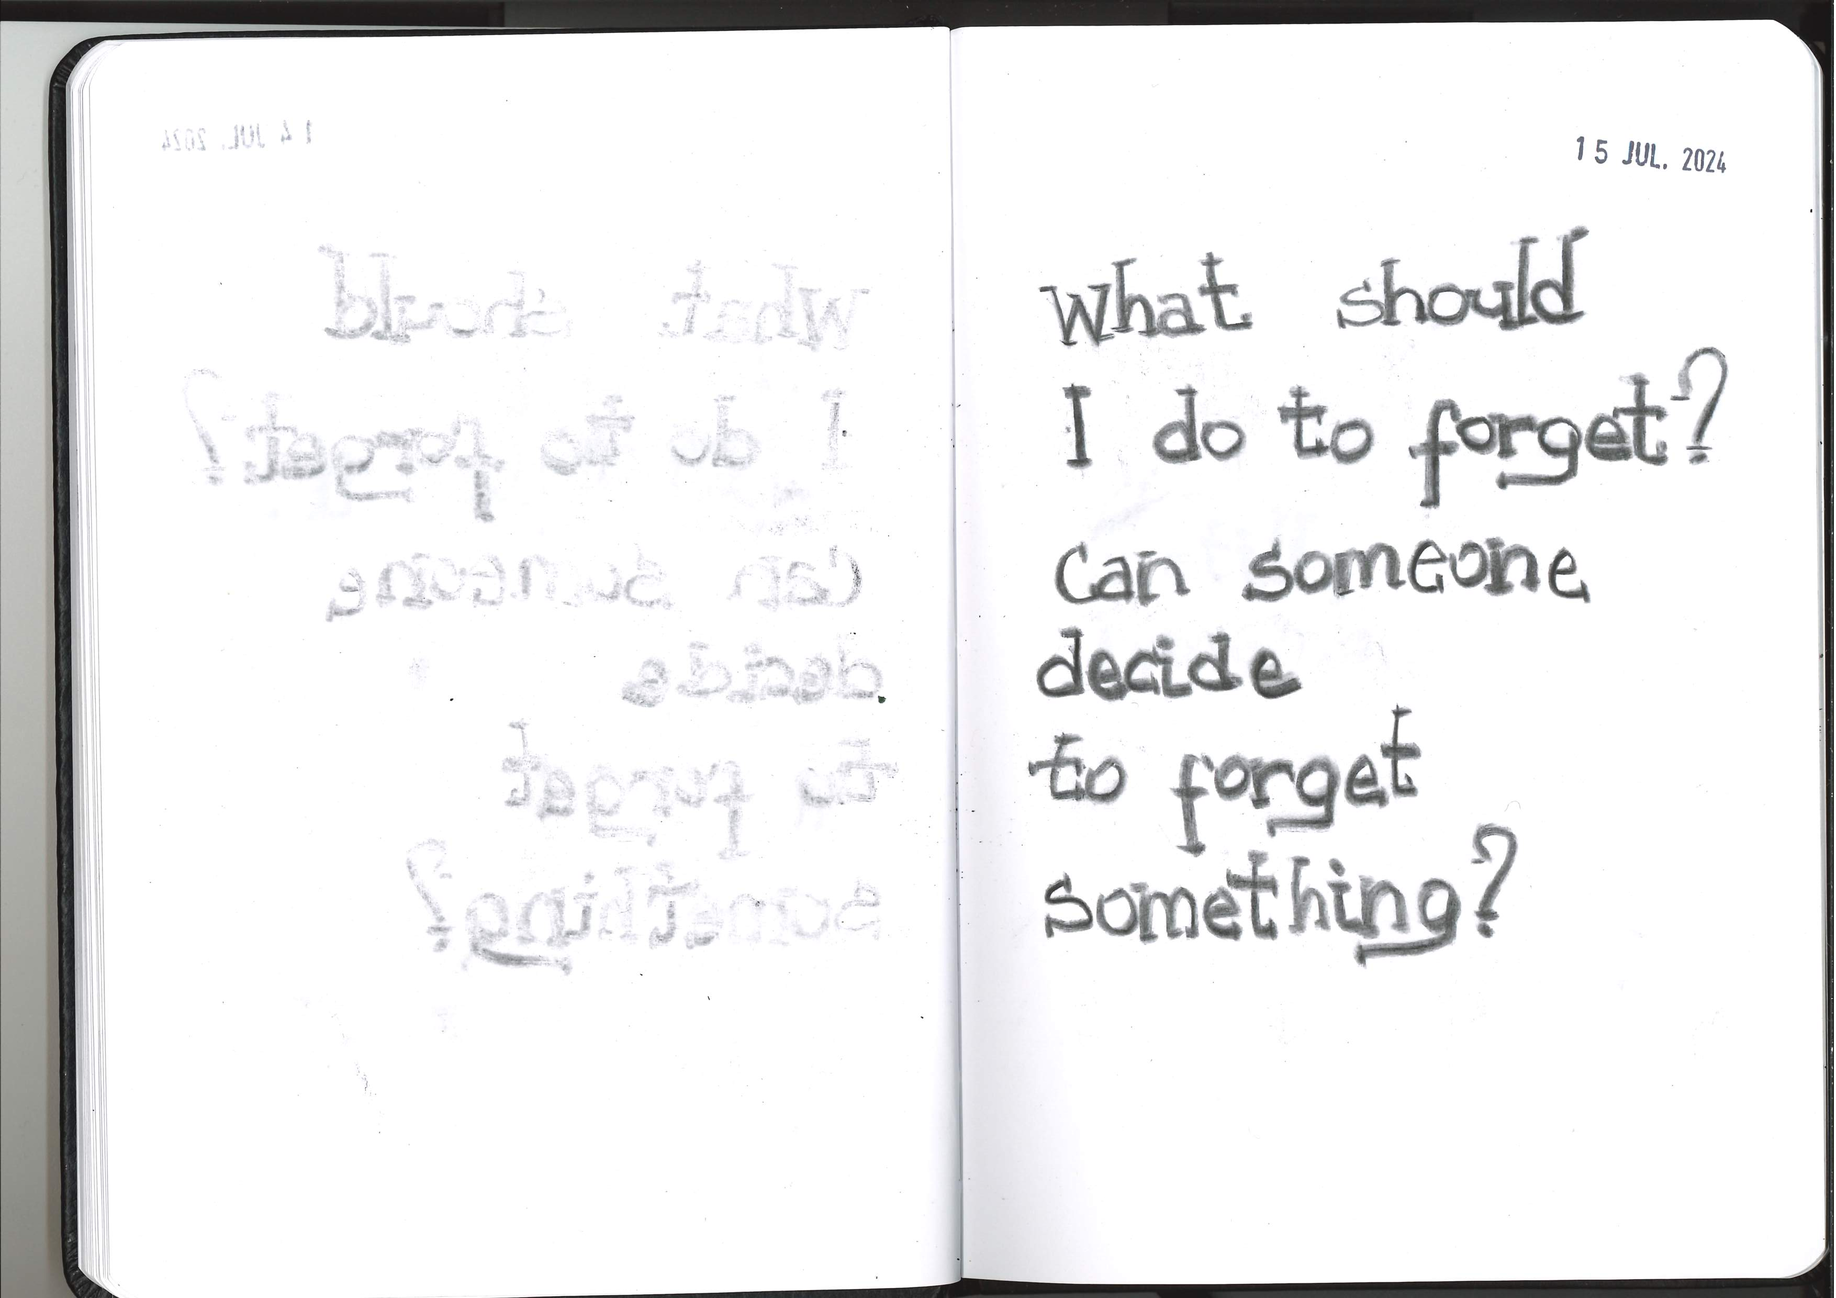 1 4 JUL. 2024
What should
I do to forget?
Can someone
decide
to forget
something?
1 5 JUL. 2024
What should
I do to forget?
Can someone
decide
to forget
something?